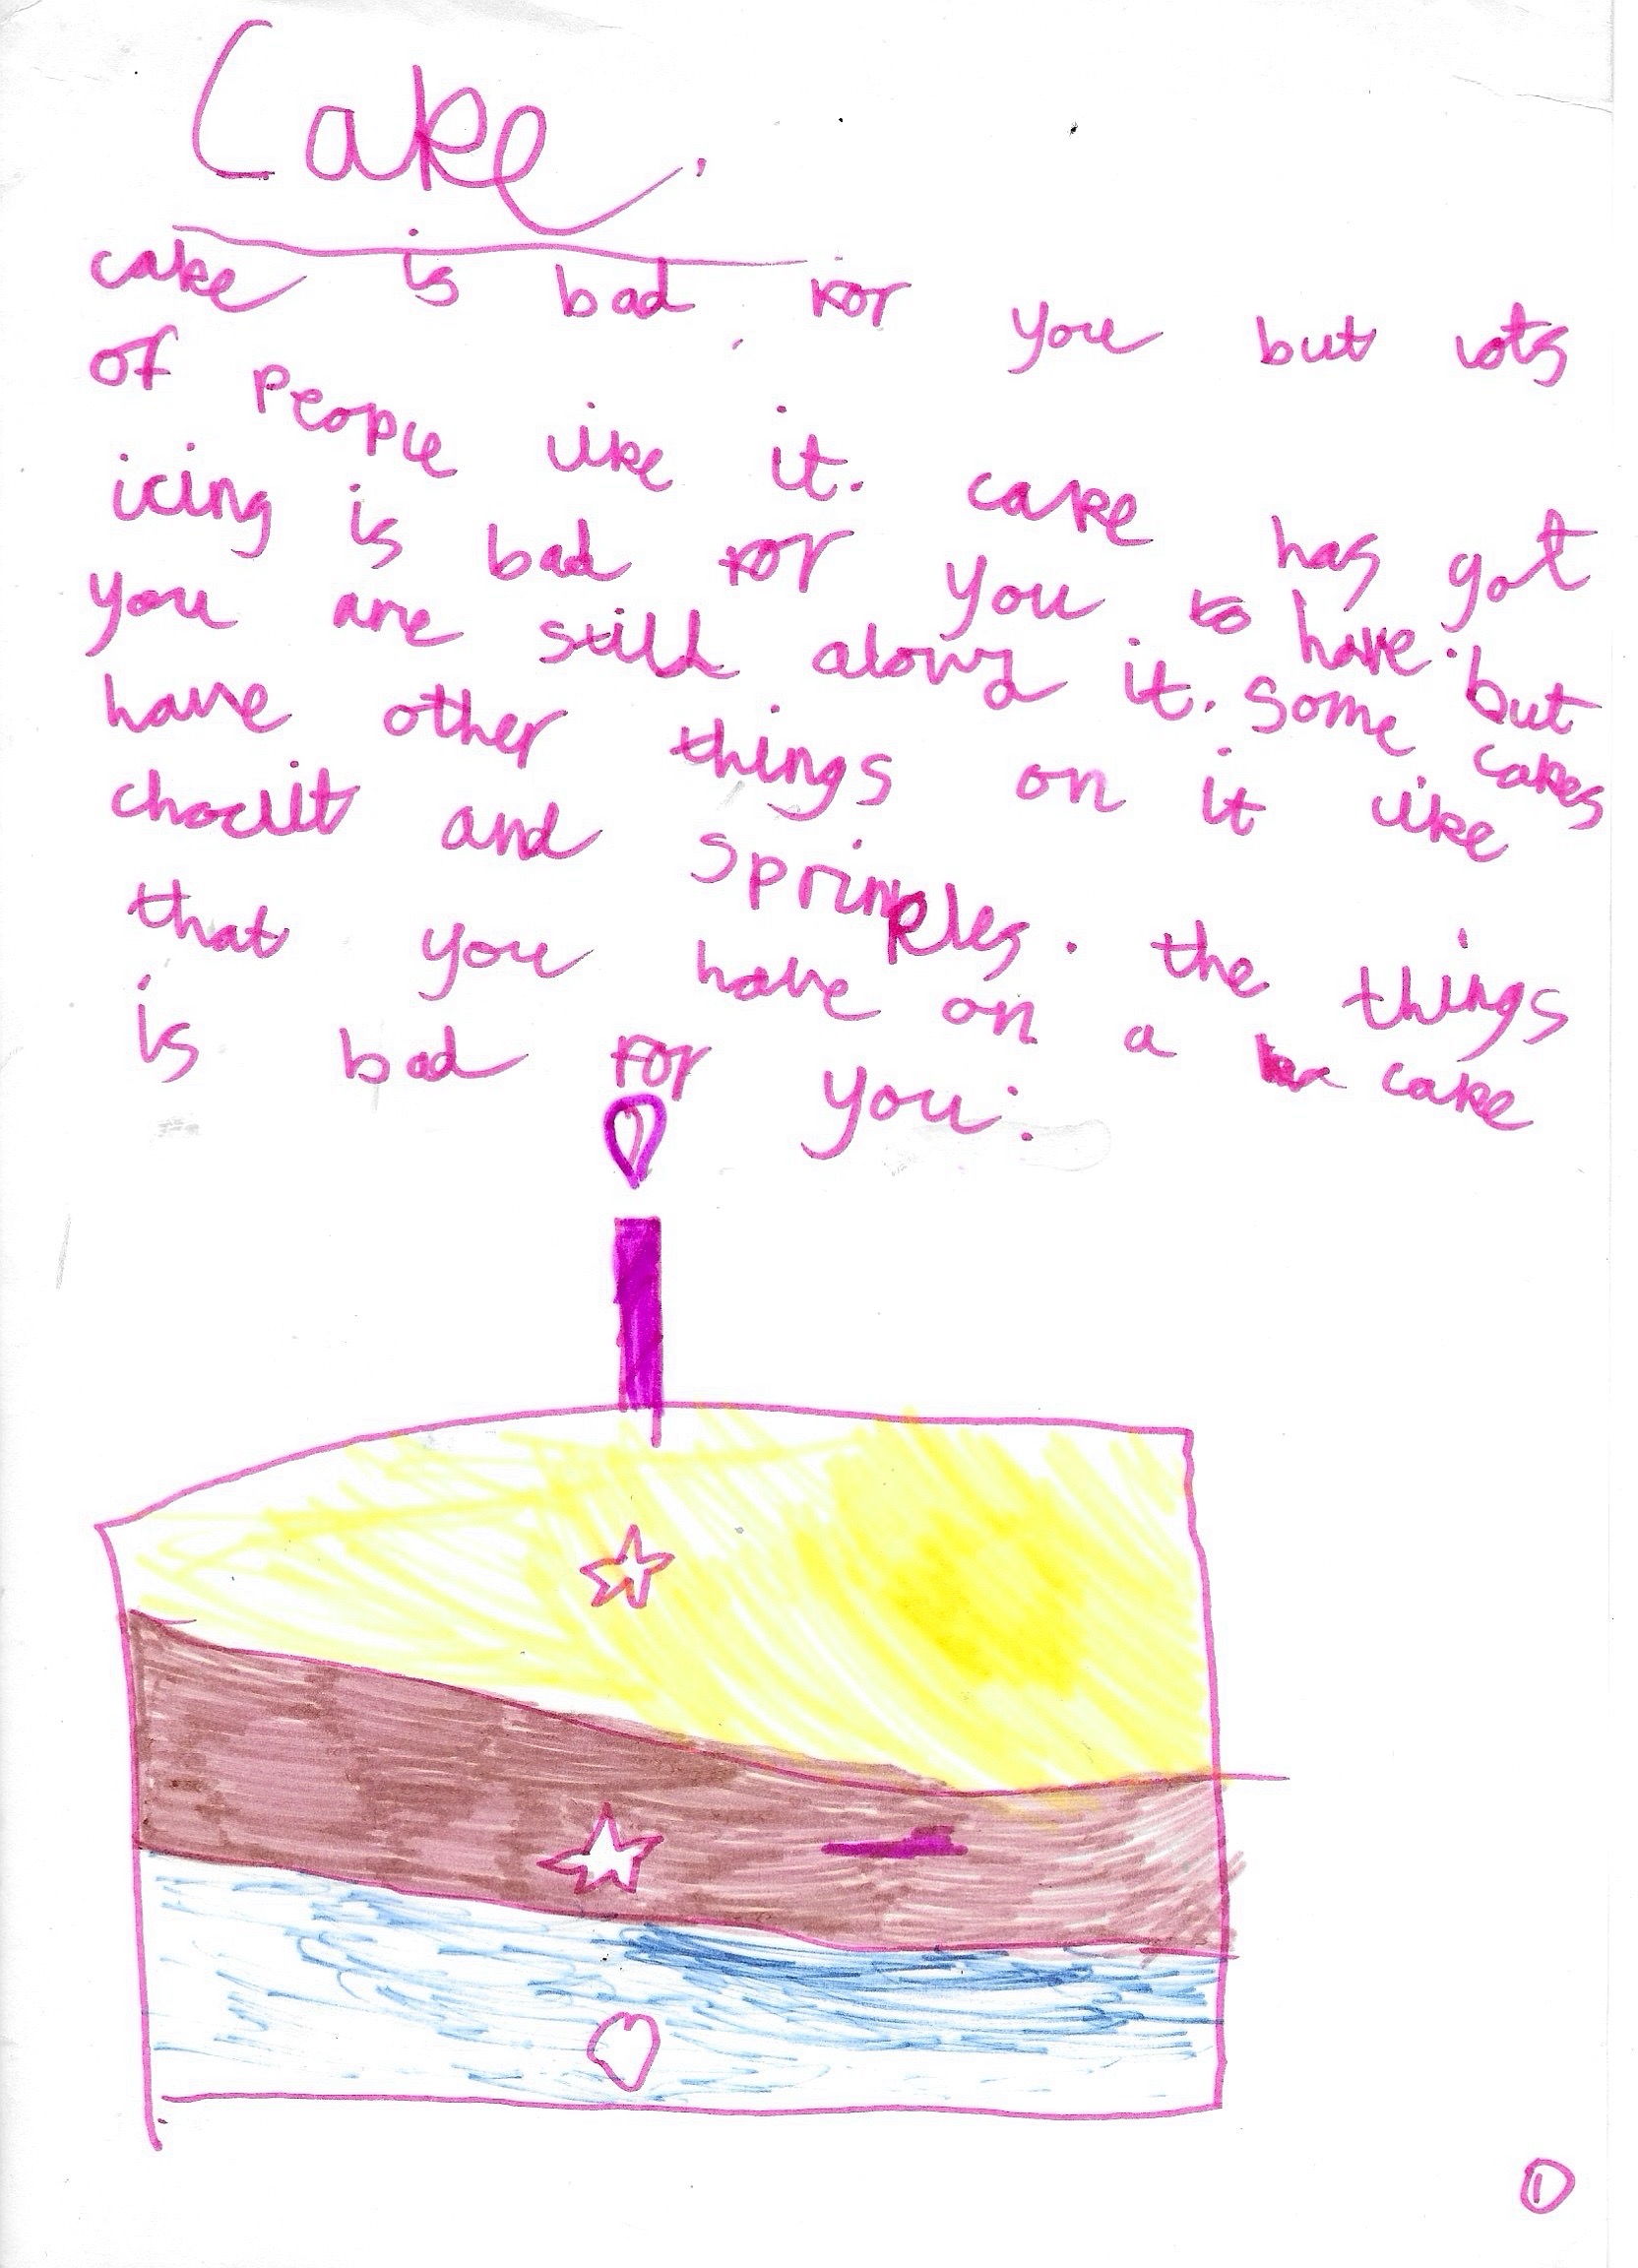 Cake.
cake is bad for you but lots
of people like it. cake has got
icing is bad for you to have. but
you are still alowd it. Some cakes
have other things on it like
choclit and sprinkles. the things
that you have on a cake
is bad for you.
1